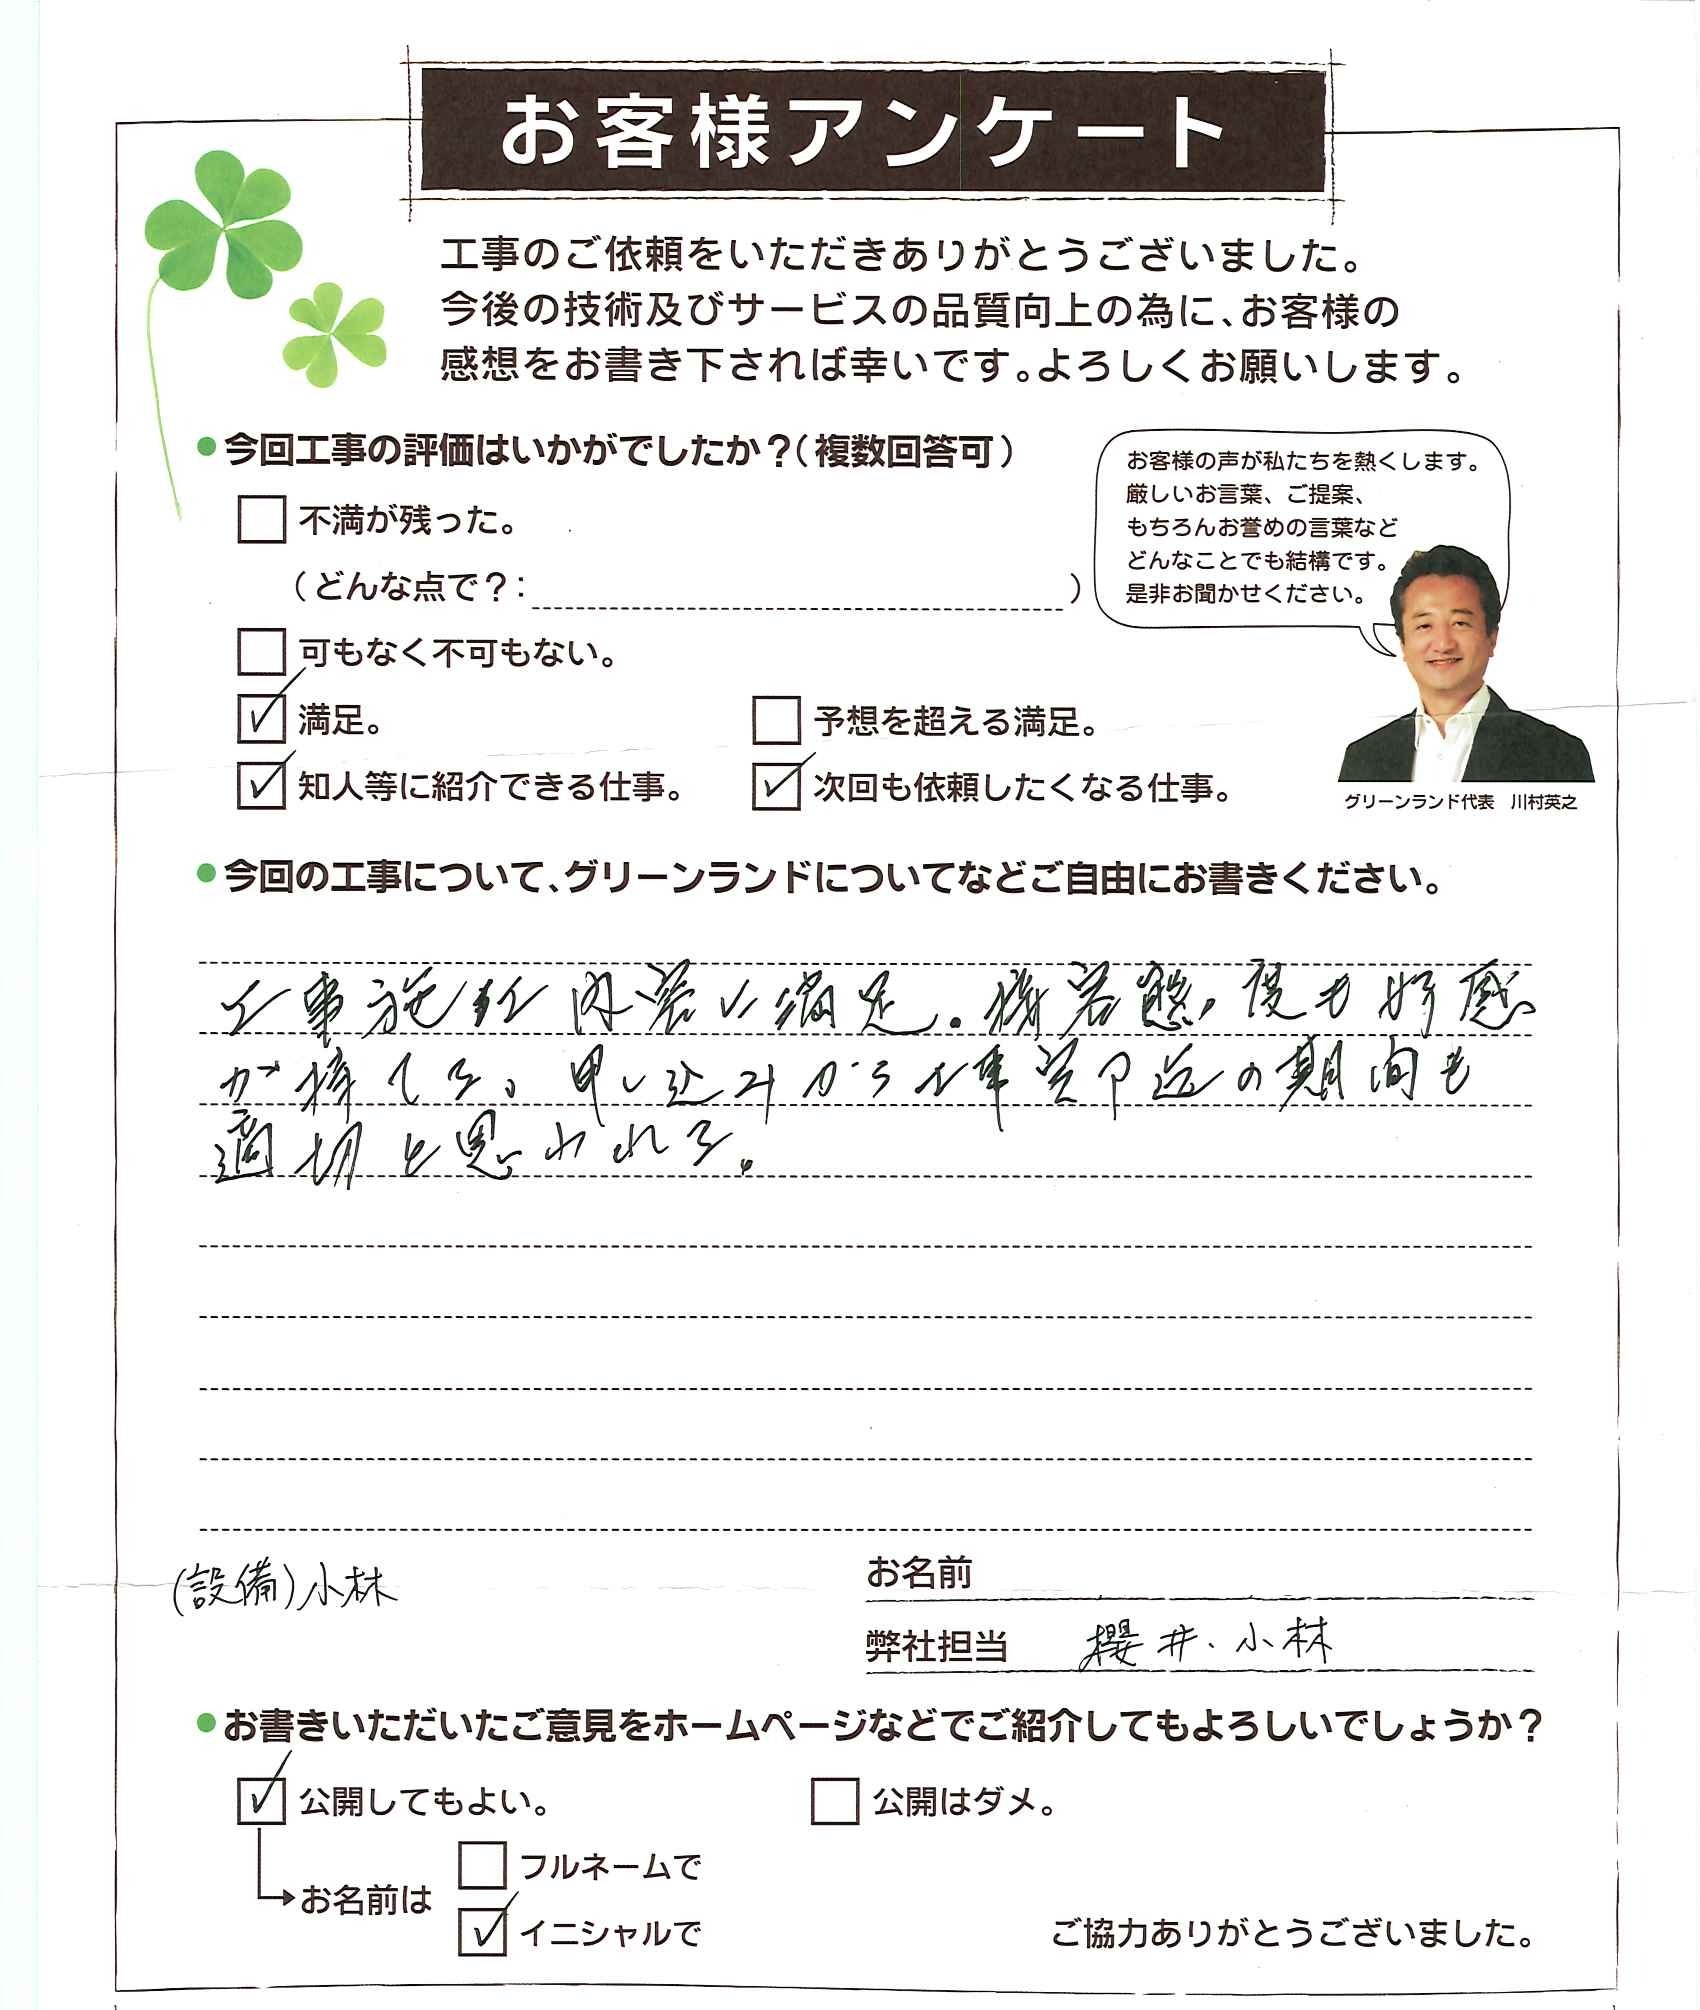 お客様アンケート
工事のご依頼をいただきありがとうございました。
今後の技術及びサービスの品質向上の為に、お客様の
感想をお書き下されば幸いです。よろしくお願いします。
●今回工事の評価はいかがでしたか?(複数回答可)
不満が残った。
(どんな点で?: )
可もなく不可もない。
満足。
予想を超える満足。
知人等に紹介できる仕事。
次回も依頼したくなる仕事。
お客様の声が私たちを熱くします。
厳しいお言葉、ご提案、
もちろんお誉めの言葉など
どんなことでも結構です。
是非お聞かせください。
グリーンランド代表 川村英之
●今回の工事について、グリーンランドについてなどご自由にお書きください。
工事施工内容に満足。接客態度も好感
が持てる。申し込みから工事完了迄の期間も
適切と思われる。
(設備)小林
お名前
弊社担当 櫻井、小林
●お書きいただいたご意見をホームページなどでご紹介してもよろしいでしょうか?
公開してもよい。
公開はダメ。
お名前は
フルネームで
イニシャルで
ご協力ありがとうございました。